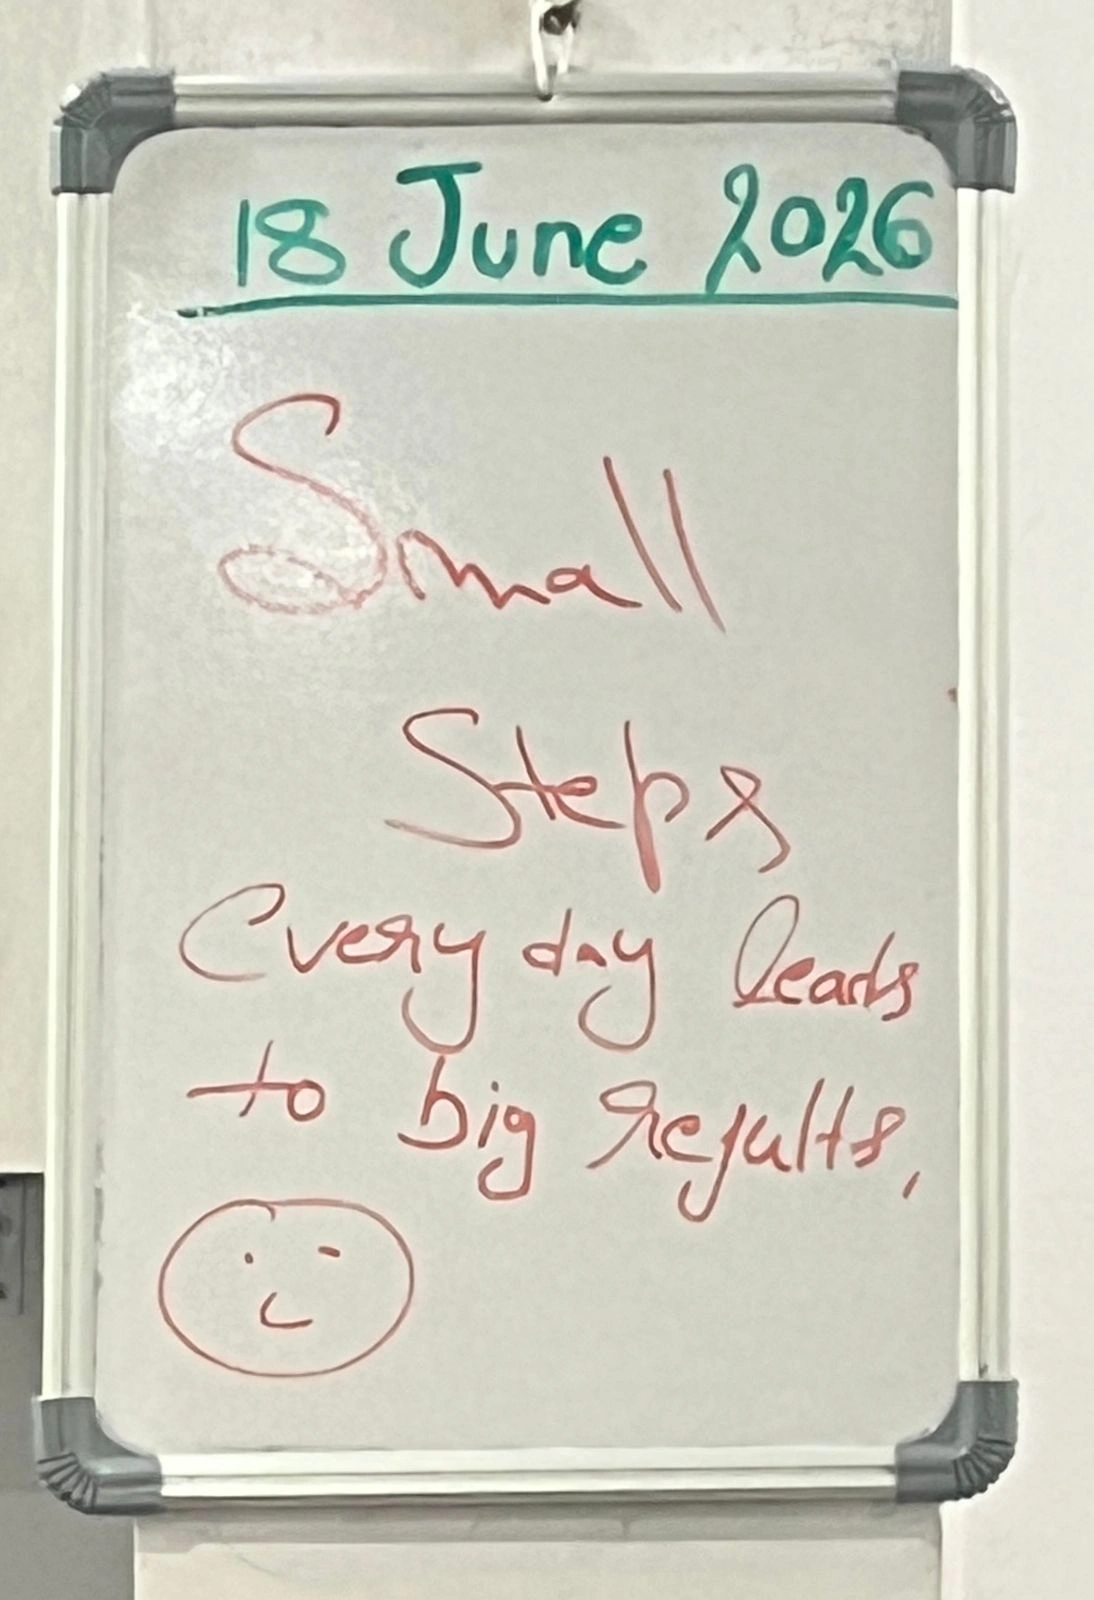 18 June 2026
Small
Steps
Every day leads
to big results,